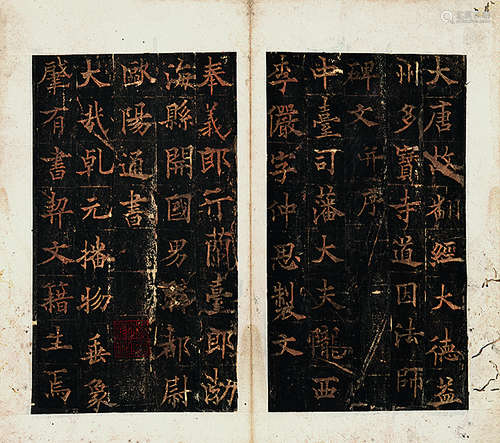 大唐故翻經大德益
州多寶寺道因法師
碑文并序
中臺司藩大夫隴西
李儼字仲思製文
奉義郎行蘭臺郎渤
海縣開國男騎都尉
歐陽通書
大哉乹元播物垂象
肇有書契文籍生焉